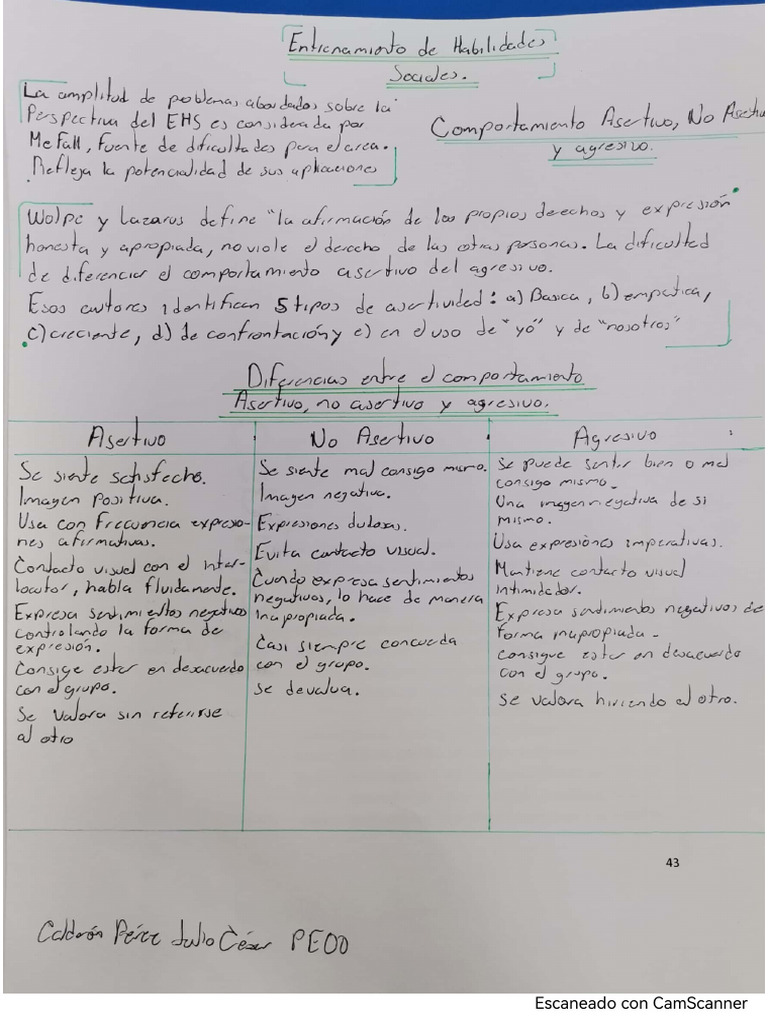 Entrenamiento de Habilidades
Sociales.
La amplitud de problemas abordados sobre la
Perspectiva del EHS es considerada por
McFall, Fuente de dificultades para el area.
Refleja la potencialidad de sus aplicaciones
Comportamiento Asertivo, No Asertivo
y agresivo.
Wolpe y Lazarus define "la afirmación de los propios derechos y expresión
honesta y apropiada, no viole el derecho de las otras personas. La dificultad
de diferenciar el comportamiento asertivo del agresivo.
Esos autores identifican 5 tipos de asertividad: a) Basica, b) empatica,
c) creciente, d) de confrontación y e) en el uso de "yo" y de "nosotros"
Diferencias entre el comportamiento
Asertivo, no asertivo y agresivo.
Asertivo
Se siente satisfecho.
Imagen positiva.
Usa con frecuencia expresio-
nes afirmativas.
Contacto visual con el inter-
locutor, habla fluidamente.
Expresa sentimientos negativos
controlando la forma de
expresión.
Consige estar en desacuerdo
con el grupo.
Se valora sin referirse
al otro
No Asertivo
Se siente mal consigo mismo.
Imagen negativa.
Expresiones dudosas.
Evita contacto visual.
Cuando expresa sentimientos
negativos, lo hace de manera
inapropiada.
Casi siempre concuerda
con el grupo.
Se devalua.
Agresivo
Se puede sentir bien o mal
consigo mismo.
Una imagen negativa de si
mismo.
Usa expresiones imperativas.
Mantiene contacto visual
intimidador.
Expresa sentimientos negativos de
forma inapropiada.
consigue estar en desacuerdo
con el grupo.
Se valora hiriendo al otro.
43
Calderón Pérez Julio César PEOD
Escaneado con CamScanner